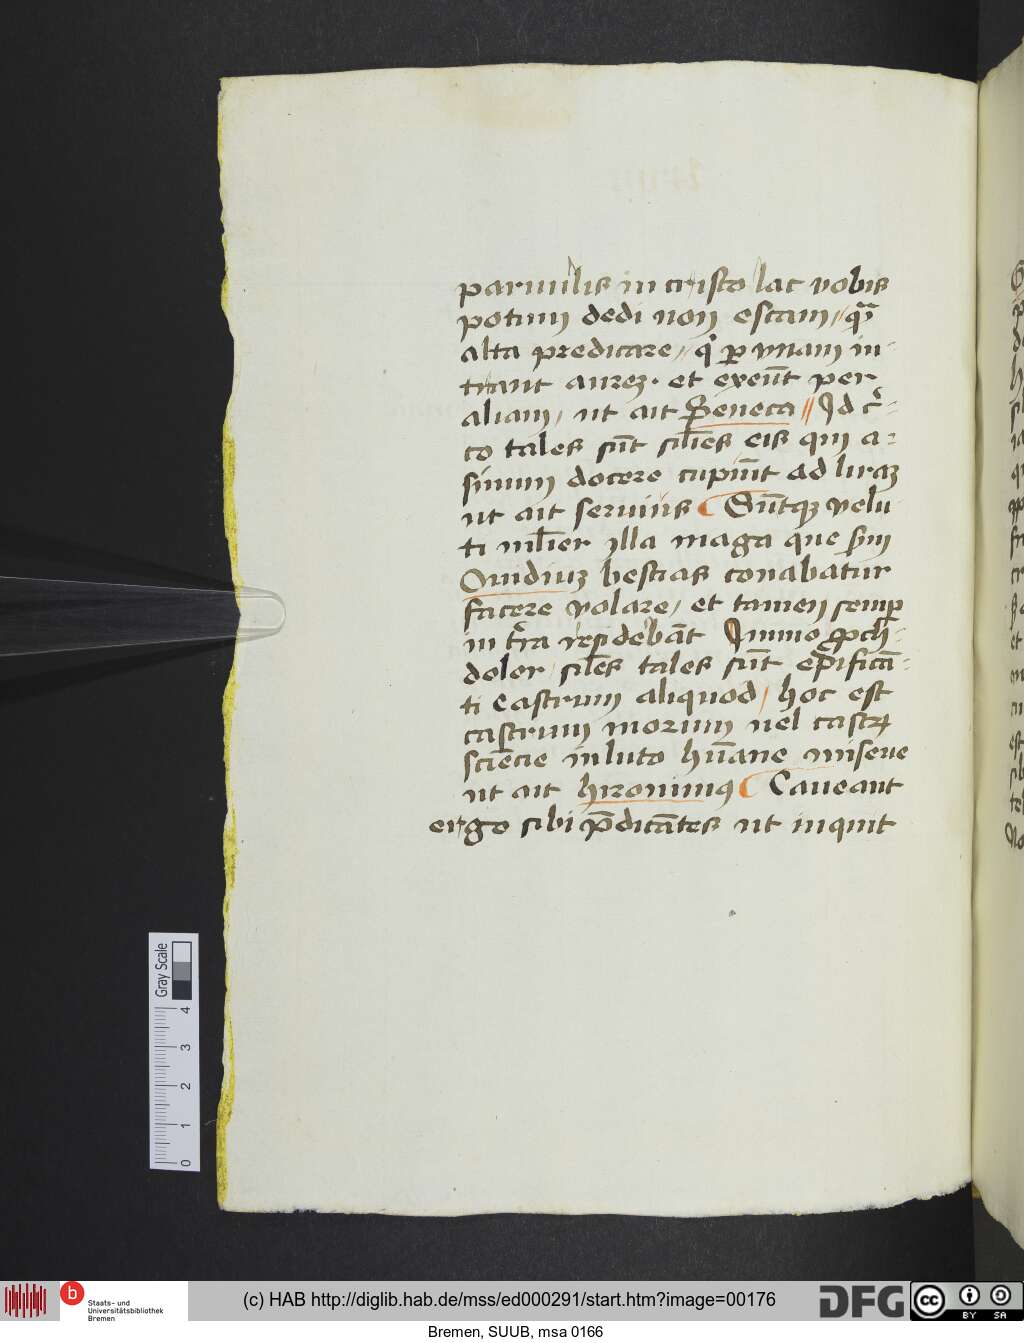 paruulis in cristo lac vobis
potum dedi non escam // qꝛ̃
alta predicare // q̇ ꝑ vnam in-
trant aurez · et exeu̅t per
aliam / ut ait Seneca // Id
co tales su̅t sil̅es eis qui a-
sinum docere cupiu̅t ad liraꝫ
ut ait seruius Su̅tqꝫ velu
ti mul̅ier illa maga que
Ouidiuꝫ bestias conabatur
facere volare / et tamen semꝑ
in t̾ra residebāt Immo
dolor / sil̅es tales su̅t
ti Castrum aliquod / hoc est
castrum morum uel castꝝ
scie̅cie in luto hu̅ane miserie
ut ait hironimꝯ Caueant
ergo sibi p̅dica̅tes ut inquit
Gray Scale
0 1 2 3 4
b
Staats- und
Universitätsbibliothek
Bremen
(c) HAB http://diglib.hab.de/mss/ed000291/start.htm?image=00176
DFG
cc
BY SA
Bremen, SUUB, msa 0166